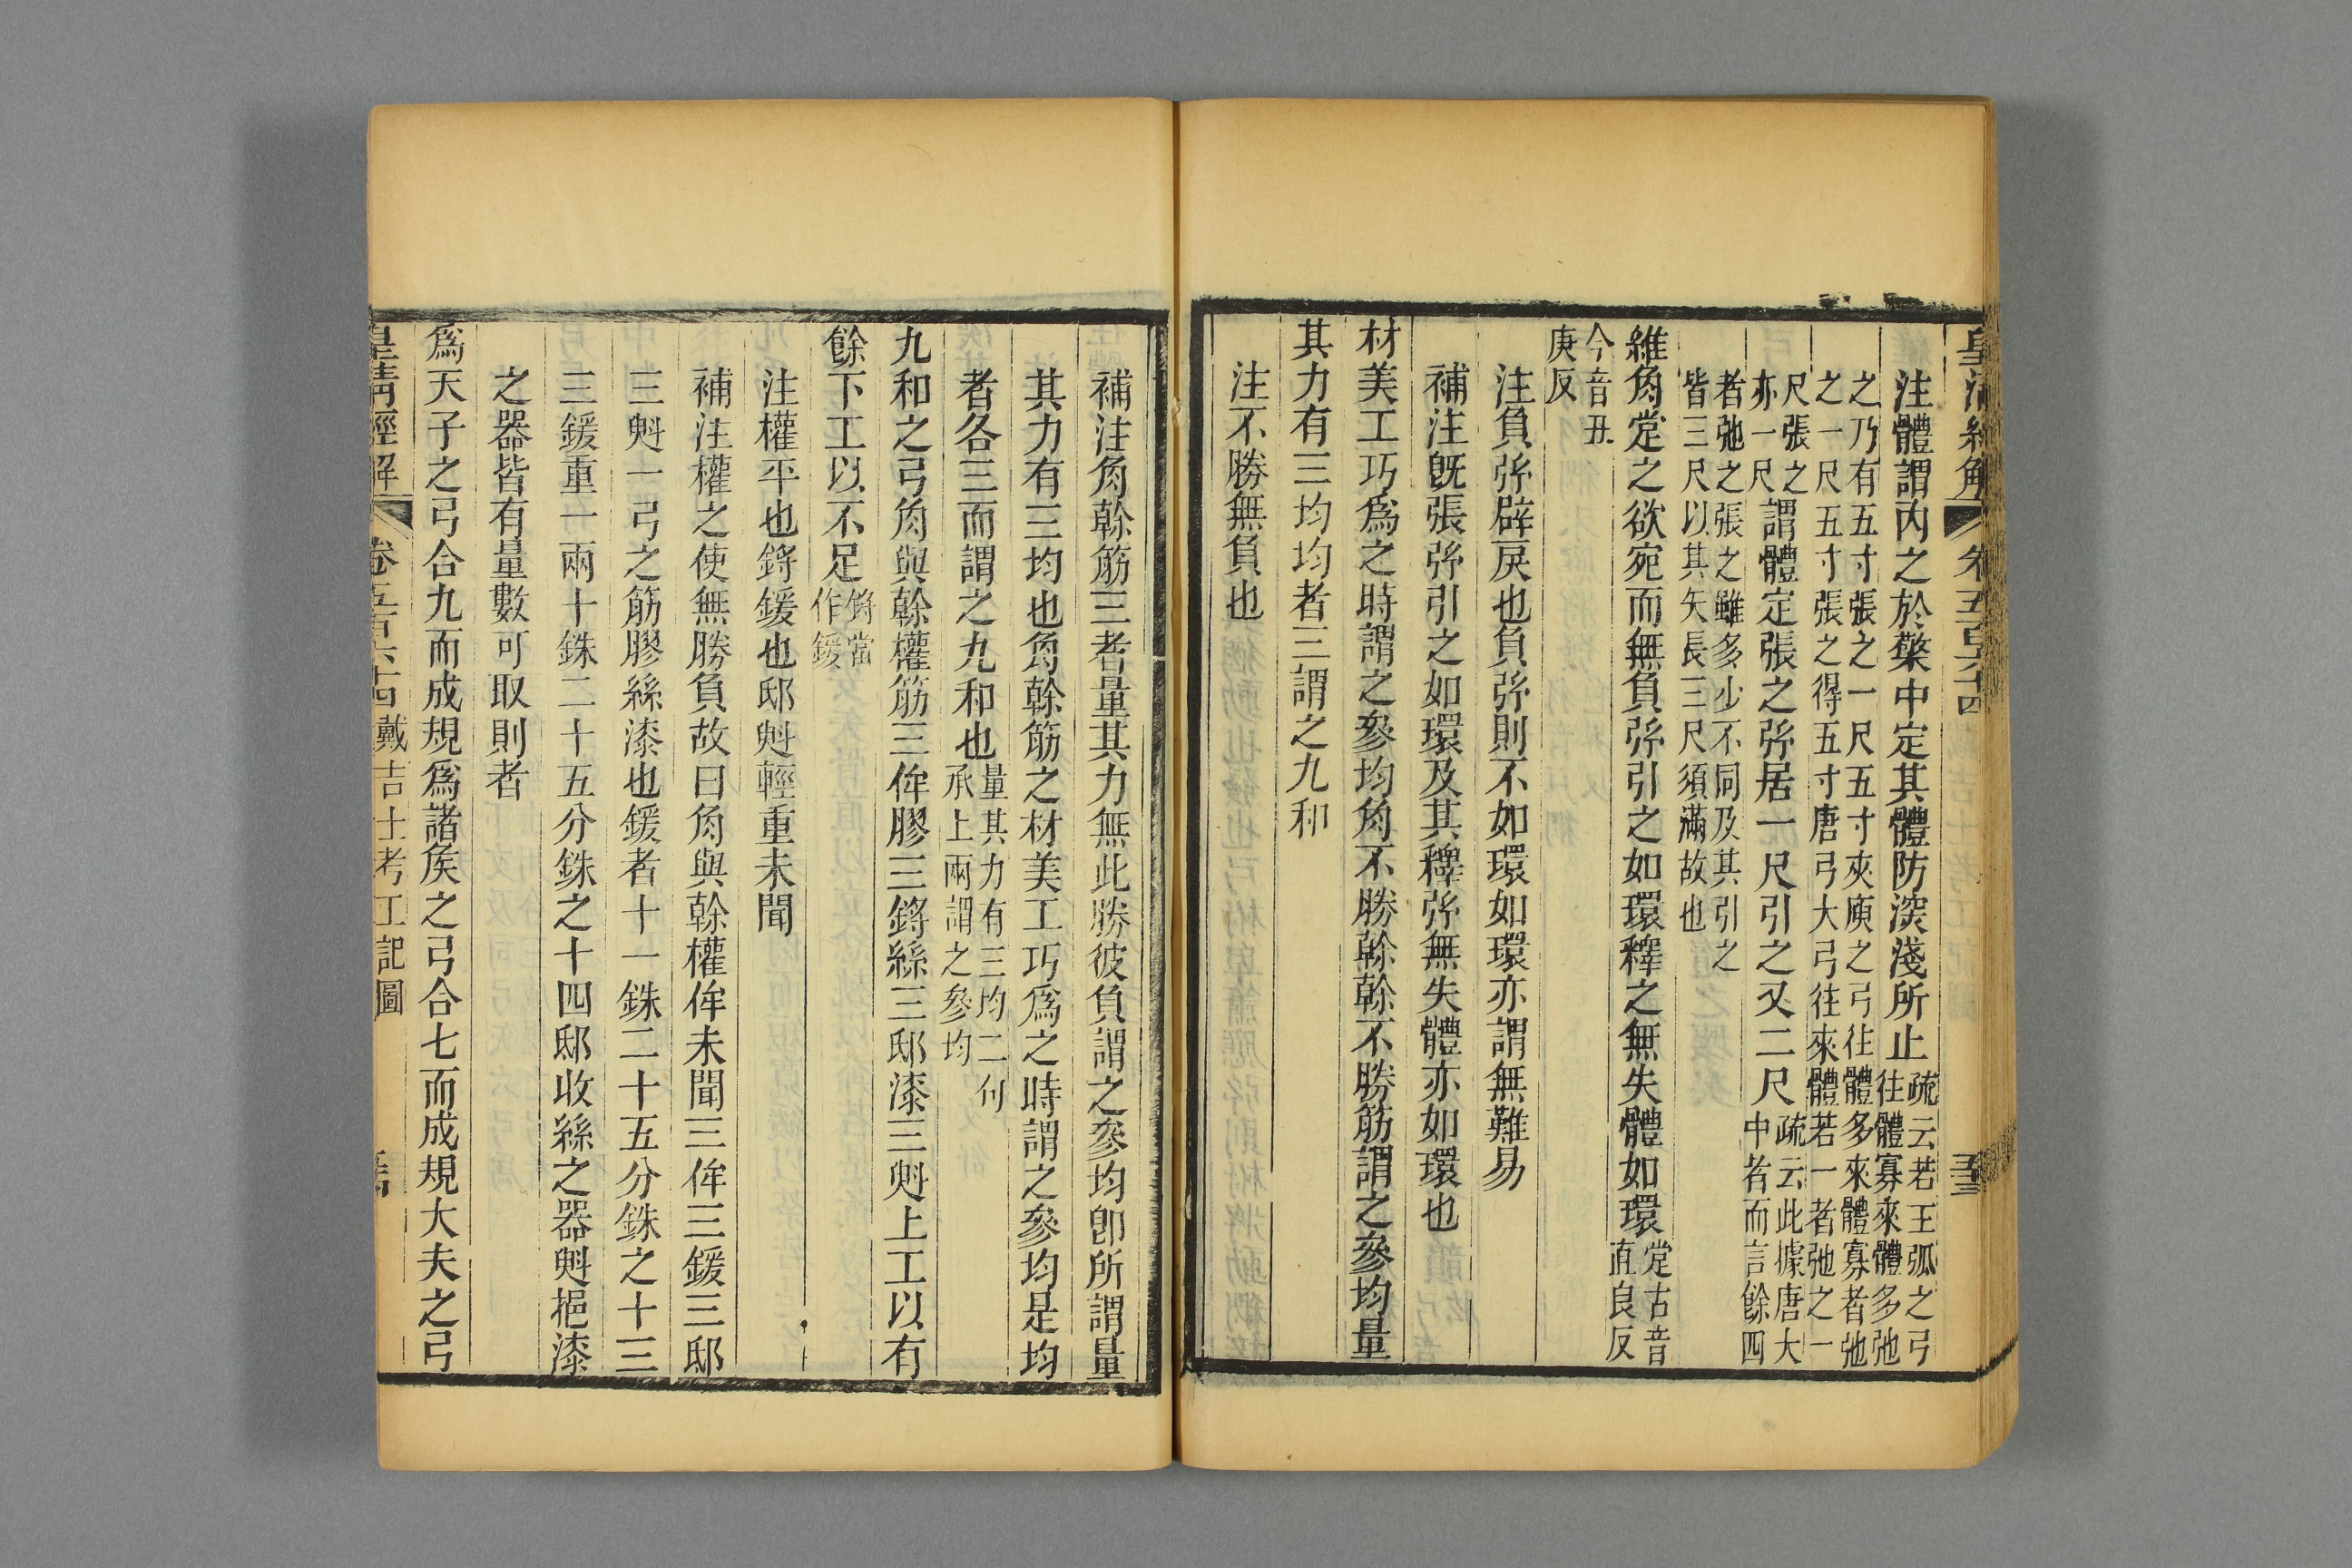 皇清經解 卷五百六十四
注體謂內之於檠中定其體防深淺所止疏云若王弧之弓往體寡來體多弛
之乃有五寸張之一尺五寸夾庾之弓往體多來體寡者弛之一尺五寸張之得五寸唐弓大弓往來體若一者弛之一
尺張之亦一尺謂體定張之弶居一尺引之又二尺疏云此據唐大中者而言餘四
者弛之張之雖多少不同及其引之皆三尺以其矢長三尺須滿故也
維角㲉之欲宛而無負弦引之如環釋之無失體如環㲉古音直良反
今音丑庚反
注負弦辟戾也負弦則不如環如環亦謂無難易
補注旣張弦引之如環及其釋弦無失體亦如環也
材美工巧爲之時謂之參均角不勝榦榦不勝筋謂之參均量
其力有三均均者三謂之九和
注不勝無負也
補注角榦筋三者量其力無此勝彼負謂之參均卽所謂量
其力有三均也角榦筋之材美工巧爲之時謂之參均是均
者各三而謂之九和也量其力有三均二句承上兩謂之參均
九和之弓角與榦權筋三侔膠三鋝絲三邸漆三斞上工以有
餘下工以不足鋝當作鍰
注權平也鋝鍰也邸斞輕重未聞
補注權之使無勝負故曰角與榦權侔未聞三侔三鍰三邸
三斞一弓之筋膠絲漆也鍰者十一銖二十五分銖之十三
三鍰重一兩十銖二十五分銖之十四邸收絲之器斞挹漆
之器皆有量數可取則者
爲天子之弓合九而成規爲諸矦之弓合七而成規大夫之弓
皇清經解 卷五百六十四戴吉士考工記圖